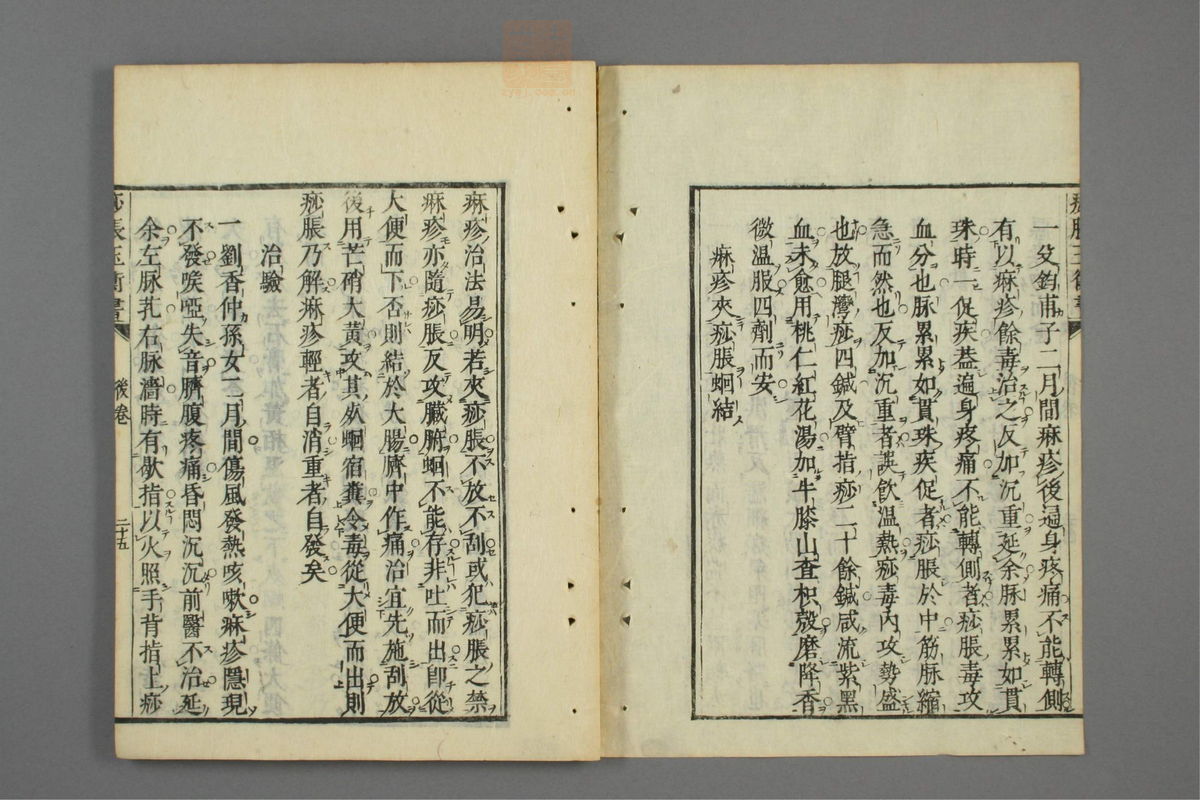 一文鈞甫子二月間痳疹後遍身疼痛不能轉側
有以痳疹餘毒治之反加沉重延余脉累累如貫
珠時一促疾葢遍身疼痛不能轉側者痧脹毒攻
血分也脉累累如貫珠疾促者痧脹於中筋脉縮
急而然也反加沉重者誤飲温熱痧毒內攻勢盛
也放腿灣痧四鍼及臂指痧二十餘鍼咸流紫黑
血未愈用桃仁紅花湯加牛膝山查枳殼磨降香
微温服四劑而安
痳疹夾痧脹蛔結
痳疹治法易明若夾痧脹不放不刮或犯痧脹之禁
痳疹亦隨痧脹反攻臟腑蛔不能存非吐而出卽從
大便而下否則結於大腸臍中作痛治宜先施刮放
後用芒硝大黃攻其䖝蛔宿糞令毒從大便而出則
痧脹乃解痳疹輕者自消重者自發矣
治驗
一劉香仲孫女二月間傷風發熱咳嗽痳疹隱現
不發唉啞失音臍腹疼痛昏悶沉沉前醫不治延
余左脉芤右脉濇時有歇指以火照手背指上痧
痧脹玉衡書
後卷
二十五